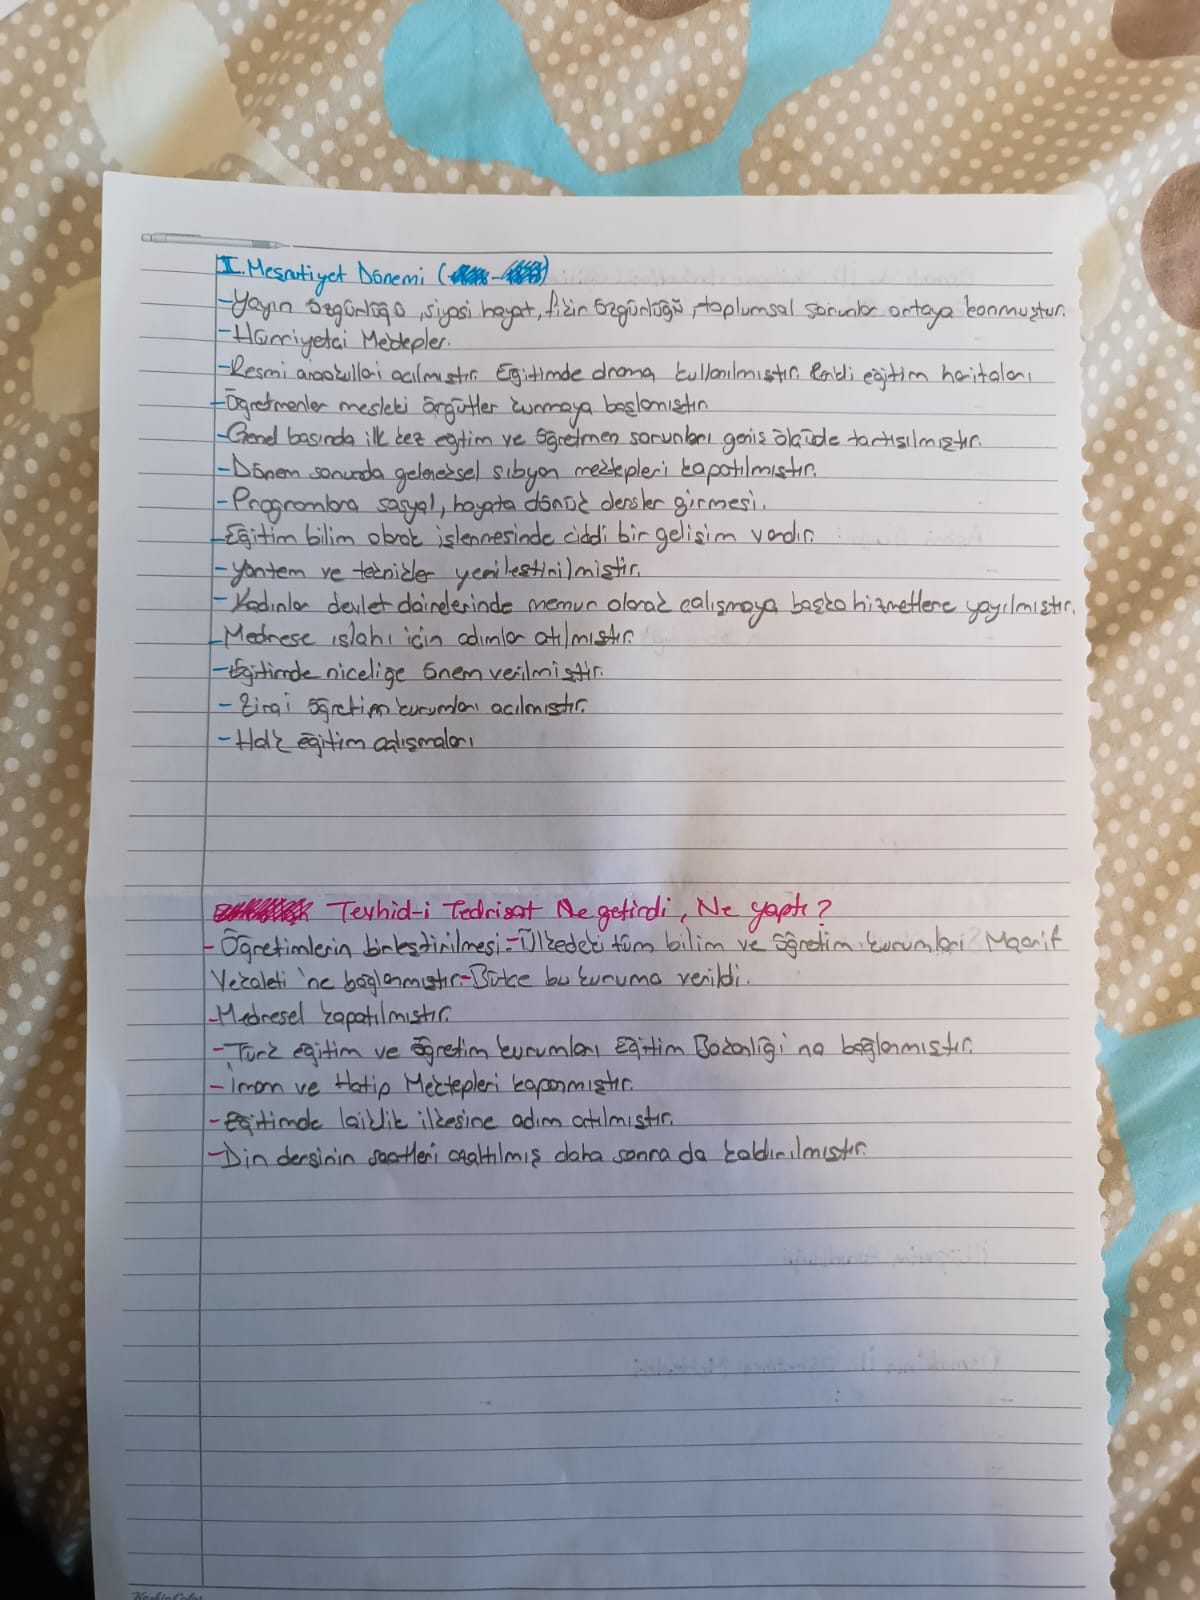 I. Meşrutiyet Dönemi ( - )
-Yayın özgünlüğü, siyasi hayat, fikir özgünlüğü, toplumsal sorunlar ortaya konmuştur.
-Hürriyetçi Mektepler.
-Resmi anaokulları açılmıştır. Eğitimde drama kullanılmıştır. eğitim haritaları
-Öğretmenler mesleki örgütler kurmaya başlamıştır.
-Genel basında ilk kez eğitim ve öğretmen sorunları geniş ölçüde tartışılmıştır.
-Dönem sonunda geleneksel sıbyan mektepleri kapatılmıştır.
-Programlara sosyal, hayata dönük dersler girmesi.
-Eğitim bilim olarak işlenmesinde ciddi bir gelişim vardır.
-Yöntem ve teknikler yenileştirilmiştir.
-Kadınlar devlet dairelerinde memur olarak çalışmaya başka hizmetlere yayılmıştır.
-Medrese ıslahı için adımlar atılmıştır.
-Eğitimde niceliğe önem verilmiştir.
-Zirai öğretim kurumları açılmıştır.
-Halk eğitim çalışmaları
Tevhid-i Tedrisat Ne getirdi, Ne yaptı?
-Öğretimlerin birleştirilmesi.-Ülkedeki tüm bilim ve öğretim kurumları Maarif
Vekaleti'ne bağlanmıştır.-Bütçe bu kuruma verildi.
-Medresel kapatılmıştır.
-Türk eğitim ve öğretim kurumları Eğitim Bakanlığı na bağlanmıştır.
-İmam ve Hatip Mektepleri kapanmıştır.
-Eğitimde laiklik ilkesine adım atılmıştır.
-Din dersinin saatleri azaltılmış daha sonra da kaldırılmıştır.